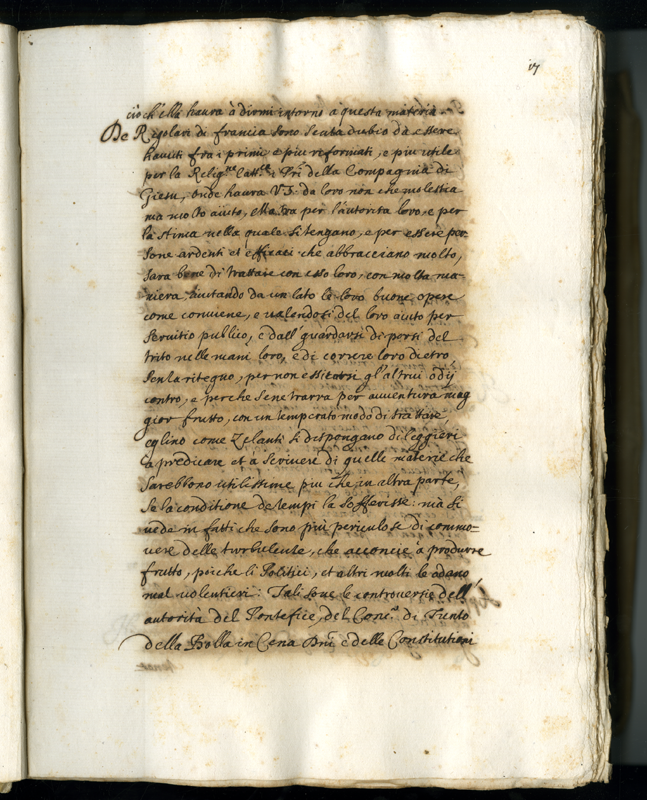 17
ciò ch'ella haura à dirmi intorno à questa materia.
De Regolari di francia sono senza dubio da essere
hauuti fra i primi e piu riformati, e piu utile
per la Relig.ne Catt.ca i Pri della Compagnia di
Giesu, onde haura V.S. da loro non che molestia
ma molto aiuto, Ma per l'autorita loro, e per
la stima nella quale si tengano, e per essere per
sone ardenti et efficaci che abbracciano molto,
sara bene di trattare con esso loro, con molta ma-
niera aiutando da un lato le loro buone opere
come conuiene, e ualendosi del loro aiuto per
seruitio publico, e dall' guardarsi di porsi del
tutto nelle mani loro, e di correre loro dietro,
senza ritegno, per non eccitarsi gl'altrui odij
contro, e perche sene trarra per auuentura mag
gior frutto, con un temperato modo di trattare
eglino come Zelanti si dispongano di leggieri
à predicare et à scriuere di quelle materie che
sarebbono utilissime piu che in altra parte,
se la conditione de tempi la sofferisse: mà si
uede in fatti che sono più periculose di commo-
uere delle turbulenze, che acconcie à produrre
frutto, poiche li Politici, et altri molti le odano
mal uolentieri: Tali sono le controuersie dell'
autorità del Pontefice, del Conc.o di Trento
della Bolla in Cena Dni e delle Constitutioni